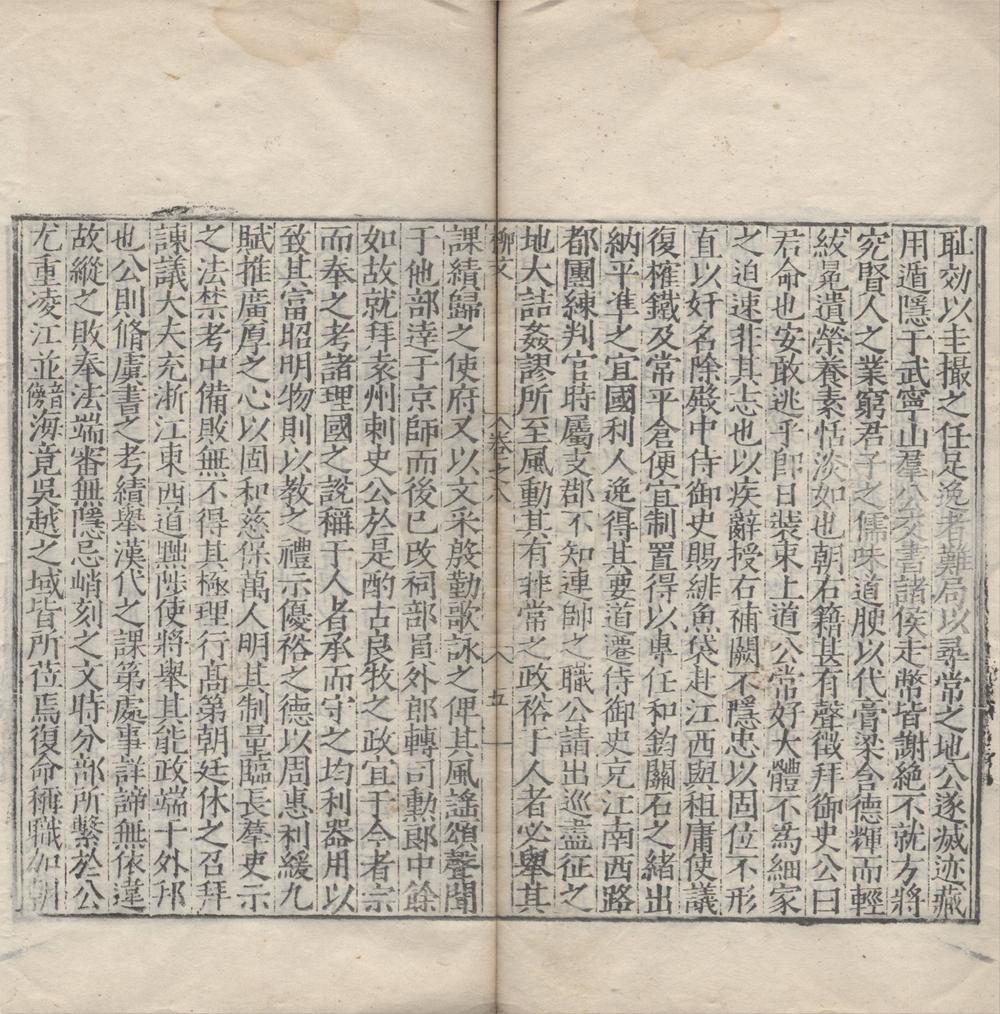 耻効以圭撮之任足逸者難局以尋常之地公遂滅迹藏
用遁隱于武寧山羣公交書諸侯走幣皆謝絕不就方將
究賢人之業窮君子之儒味道腴以代膏粱含德輝而輕
紱冕遺榮養素恬淡如也朝右籍甚有聲徵拜御史公曰
君命也安敢逃乎即日裝束上道公常好大體不爲細家
之迫速非其志也以疾辭授右補闕不隱忠以固位不形
直以奸名除殿中侍御史賜緋魚袋赴江西與租庸使議
復榷鐵及常平倉便宜制置得以專任和鈞關石之緒出
納平準之宜國利人逸得其要道遷侍御史充江南西路
都團練判官時屬支郡不知連帥之職公請出巡盡征之
地大詰姦謬所至風動其有非常之政裕于人者必舉其
柳文
卷之八
五
課績歸之使府又以文采殷勤歌詠之俾其風謠頌聲聞
于他部達于京師而後已改祠部員外郎轉司勳郎中餘
如故就拜袁州刺史公於是酌古良牧之政宜于今者宗
而奉之考諸理國之說稱于人者承而守之均利器用以
致其富昭明物則以教之禮示優裕之德以周惠利緩九
賦推廣厚之心以固和慈保萬人明其制量臨長羣吏示
之法禁考中備敗無不得其極理行髙第朝廷休之召拜
諫議大夫充浙江東西道黜陟使將舉其能政端于外邦
也公則脩虞書之考績舉漢代之課第處事詳諦無依違
故縱之敗奉法端審無隱忌峭刻之文時分部所繫於公
尤重凌江並音傍海竟吳越之域皆所莅焉復命稱職加朝